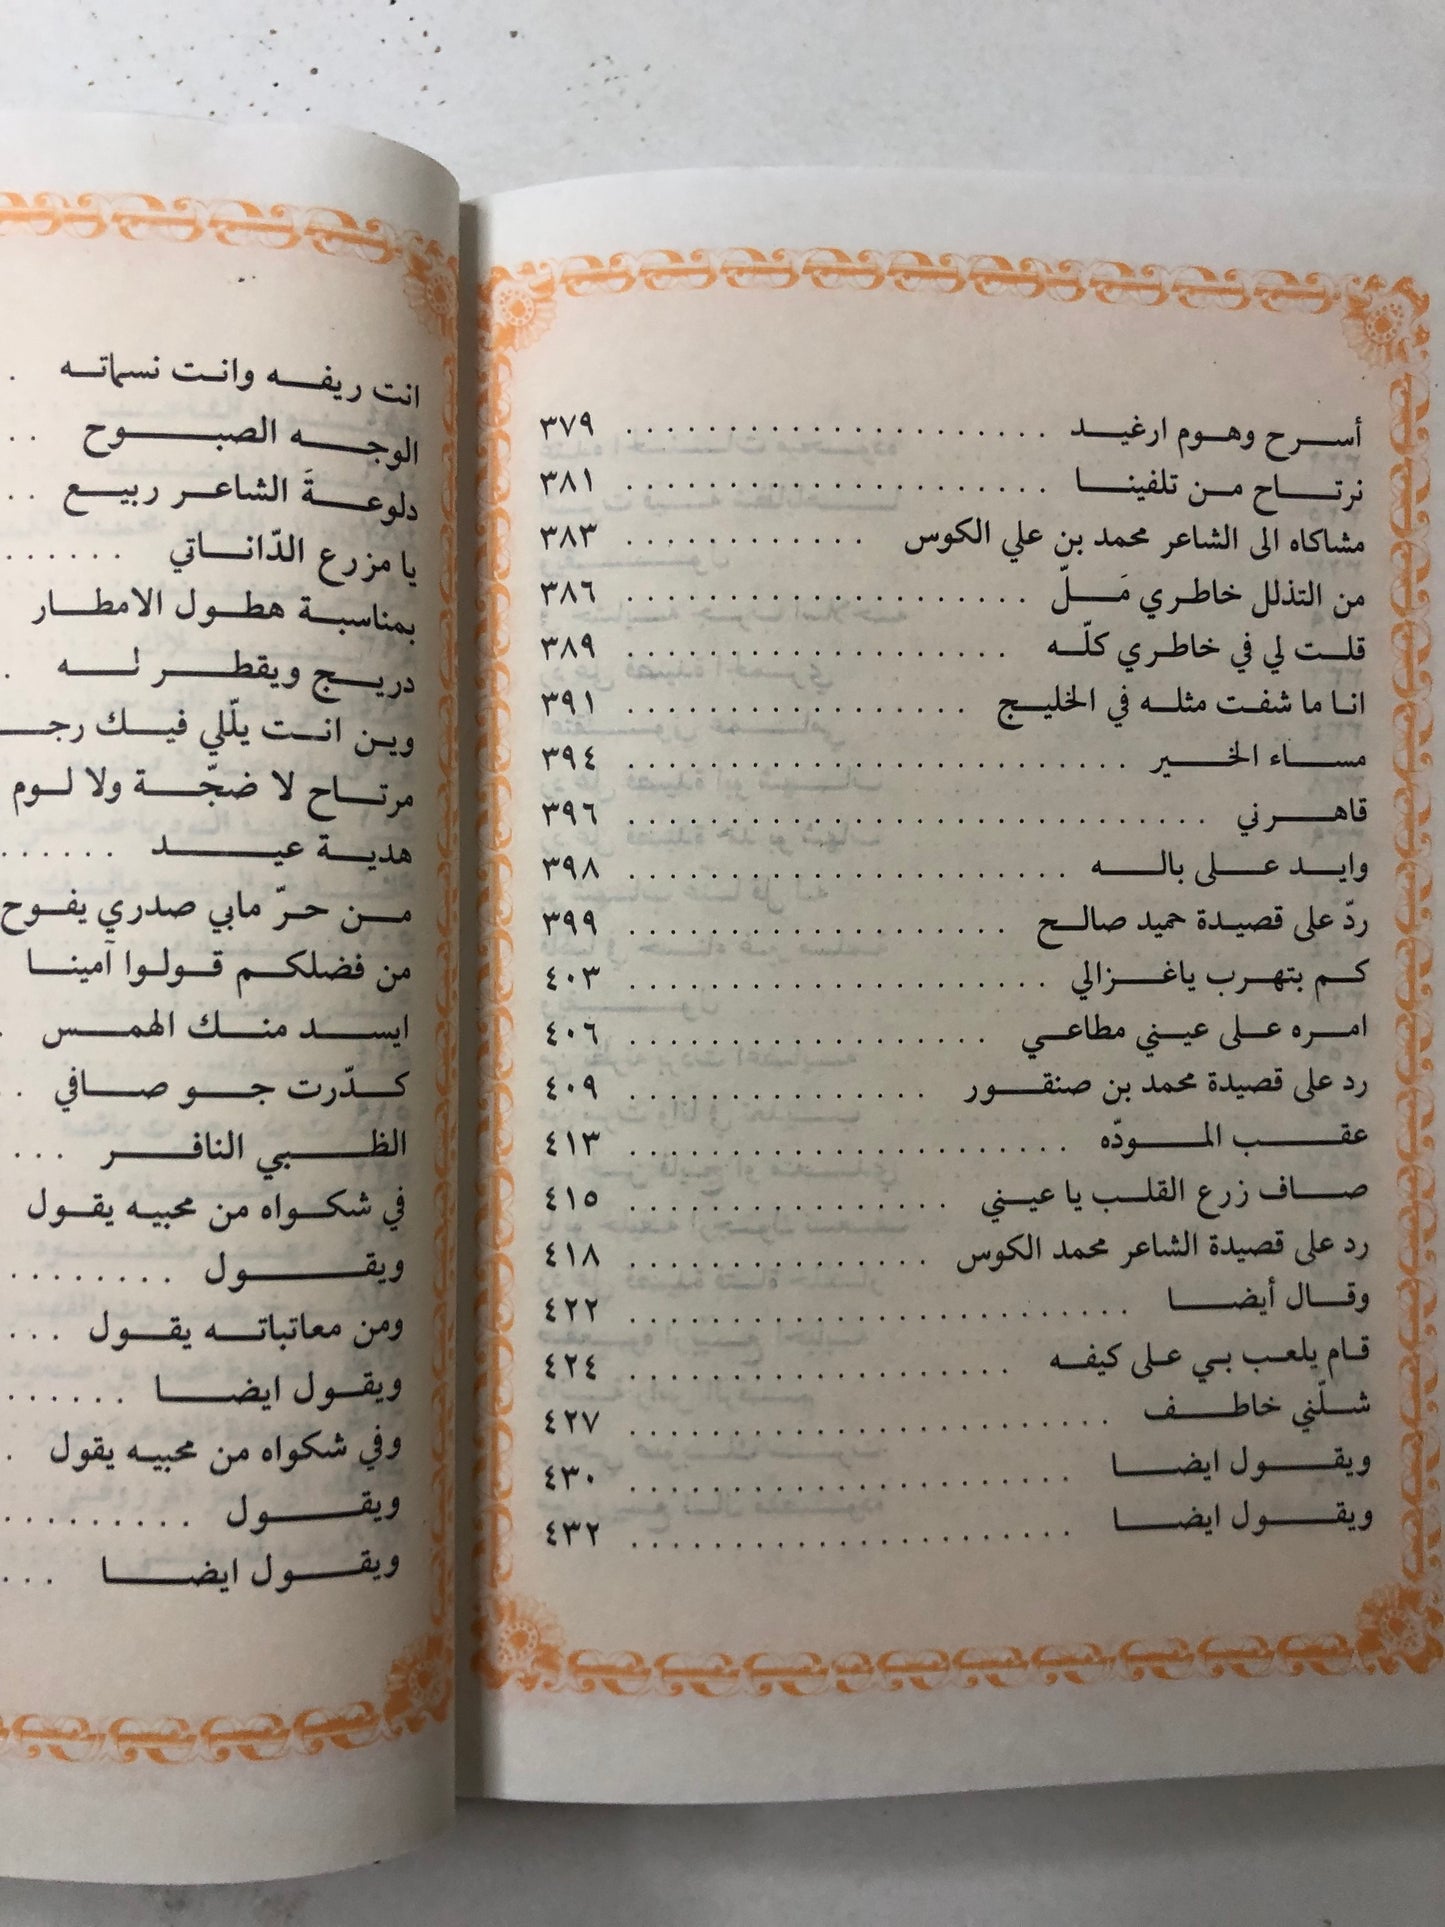 أسرح وهوم ارغيد ٣٧٩
نرتاح من تلفينا ٣٨١
مشاكاه الى الشاعر محمد بن علي الكوس ٣٨٣
من التذلل خاطري مَلّ ٣٨٦
قلت لي في خاطري كلّه ٣٨٩
انا ما شفت مثله في الخليج ٣٩١
مساء الخير ٣٩٤
قاهرني ٣٩٦
وايد على باله ٣٩٨
ردّ على قصيدة حميد صالح ٣٩٩
كم بتهرب ياغزالي ٤٠٣
امره على عيني مطاعي ٤٠٦
رد على قصيدة محمد بن صنقور ٤٠٩
عقب المودّه ٤١٣
صاف زرع القلب يا عيني ٤١٥
رد على قصيدة الشاعر محمد الكوس ٤١٨
وقال أيضا ٤٢٢
قام يلعب بي على كيفه ٤٢٤
شلّني خاطف ٤٢٧
ويقول ايضا ٤٣٠
ويقول ايضا ٤٣٢
انت ريفه وانت نسماته
الوجه الصبوح
دلوعةَ الشاعر ربيع
يا مزرع الدّاناتي
بمناسبة هطول الامطار
دريج ويقطر له
وين انت يلّلي فيك
مرتاح لا ضجّة ولا لوم
هدية عيد
من حرّ مابي صدري يفوح
من فضلكم قولوا آمينا
ايسد منك الهمس
كدّرت جو صافي
الظبي النافر
في شكواه من محبيه يقول
ويقول
ومن معاتباته يقول
ويقول ايضا
وفي شكواه من محبيه يقول
ويقول
ويقول ايضا